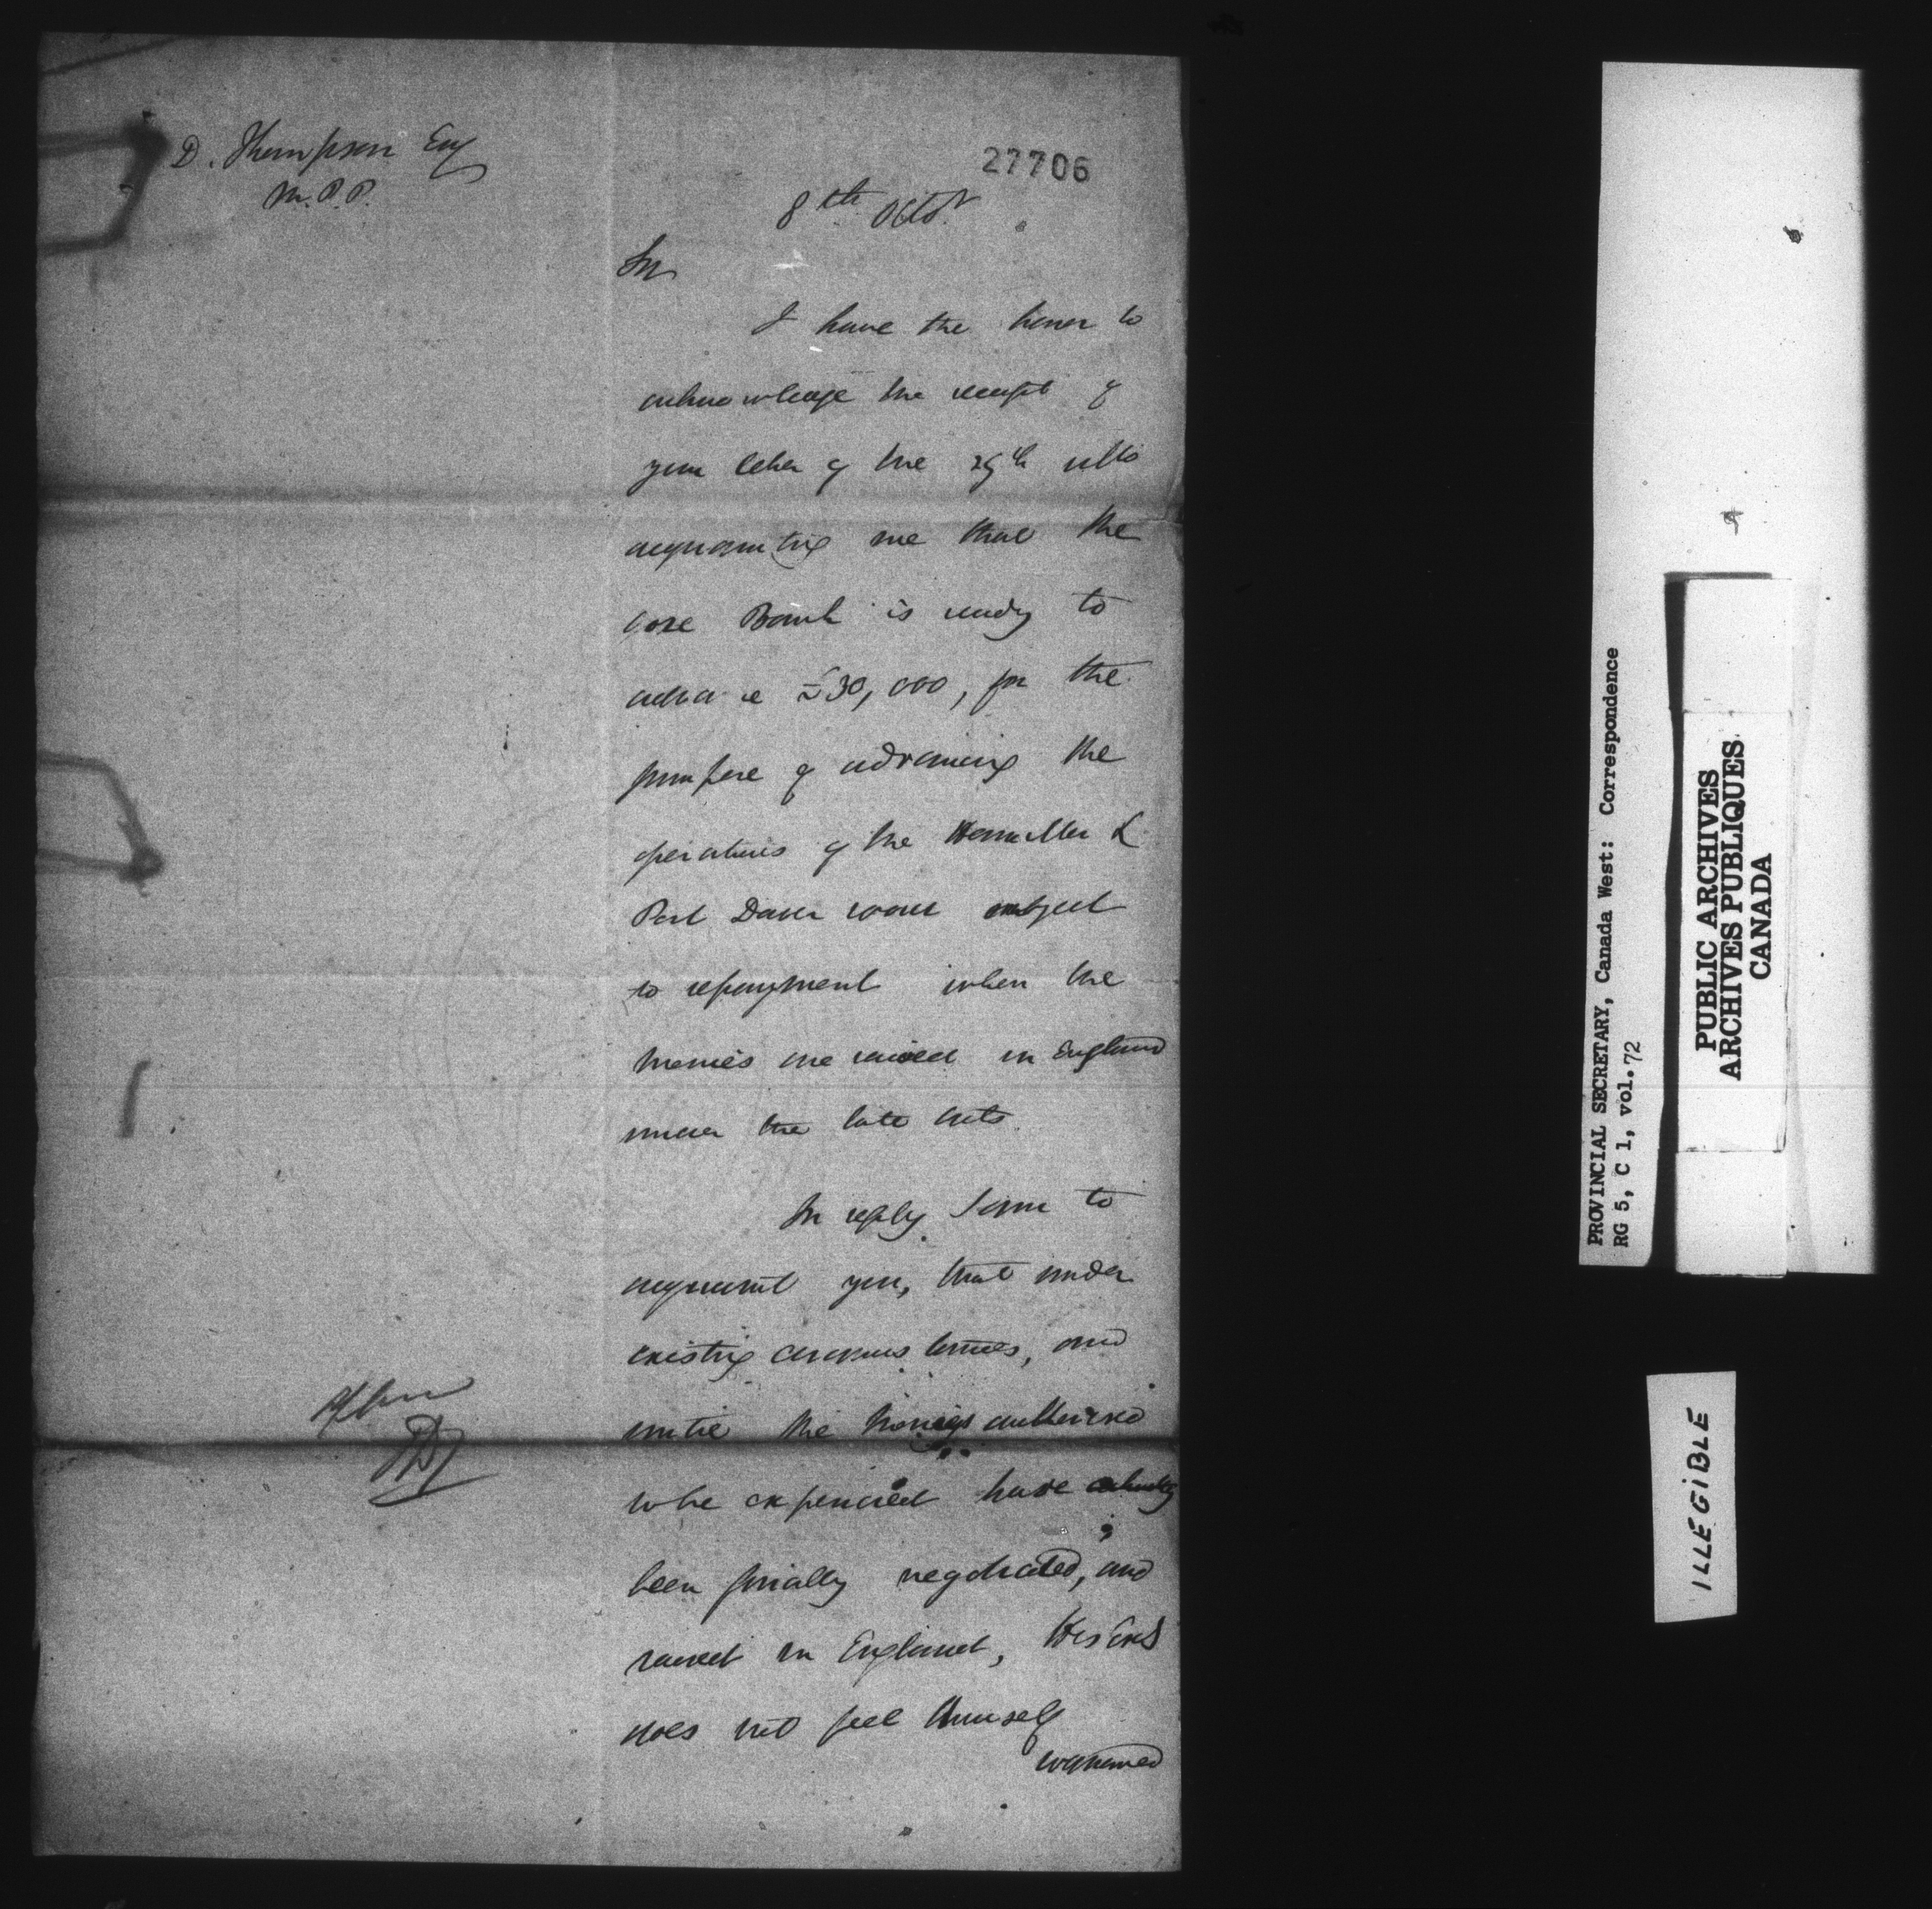 D. Thompson Esq
M.P.P.
27706
8th Octr.
Sir
I have the honor to
acknowledge the receipt of
your letter of the 29th ulto
acquainting me that the
Gore Bank is ready to
advance £30,000, for the
purpose of advancing the
operations of the Hamilton &
Port Dover road subject
to repayment when the
monies are raised in England
under the late Acts.
In reply I am to
acquaint you, that under
existing circumstances, and
until the monies authorised
to be expended have actually
been finally negotiated, and
raised in England, His Exc
does not feel himself
warranted
PROVINCIAL SECRETARY, Canada West: Correspondence
RG 5, C 1, vol. 72
PUBLIC ARCHIVES
ARCHIVES PUBLIQUES
CANADA
ILLEGIBLE